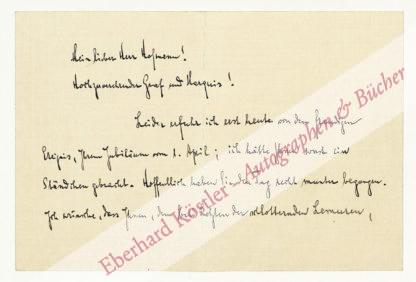 Mein lieber Herr Hofmann!
Hochzuverehrender Graf und Marquis!
Leider erfahr ich erst heute von dem freudigen
Ereignis, Ihrem Jubiläum vom 1. April; ich hätte Ihnen sonst ein
Ständchen gebracht. Hoffentlich haben Sie den Tag recht munter begangen.
Ich wünsche, dass Ihnen, dem der schlotternden Lemuren,
Eberhard Köstler - Autographen & Bücher